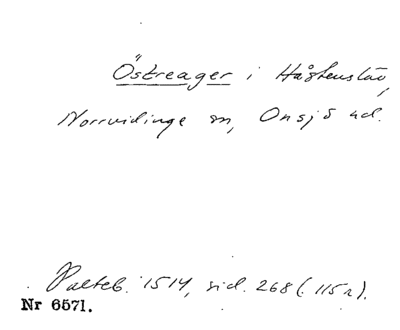 Östreager i Hågenstäv,
Norrvidinge sn, Onsjö hd.
Palteb. 1514, sid. 268 (: 115r).
Nr 6571.